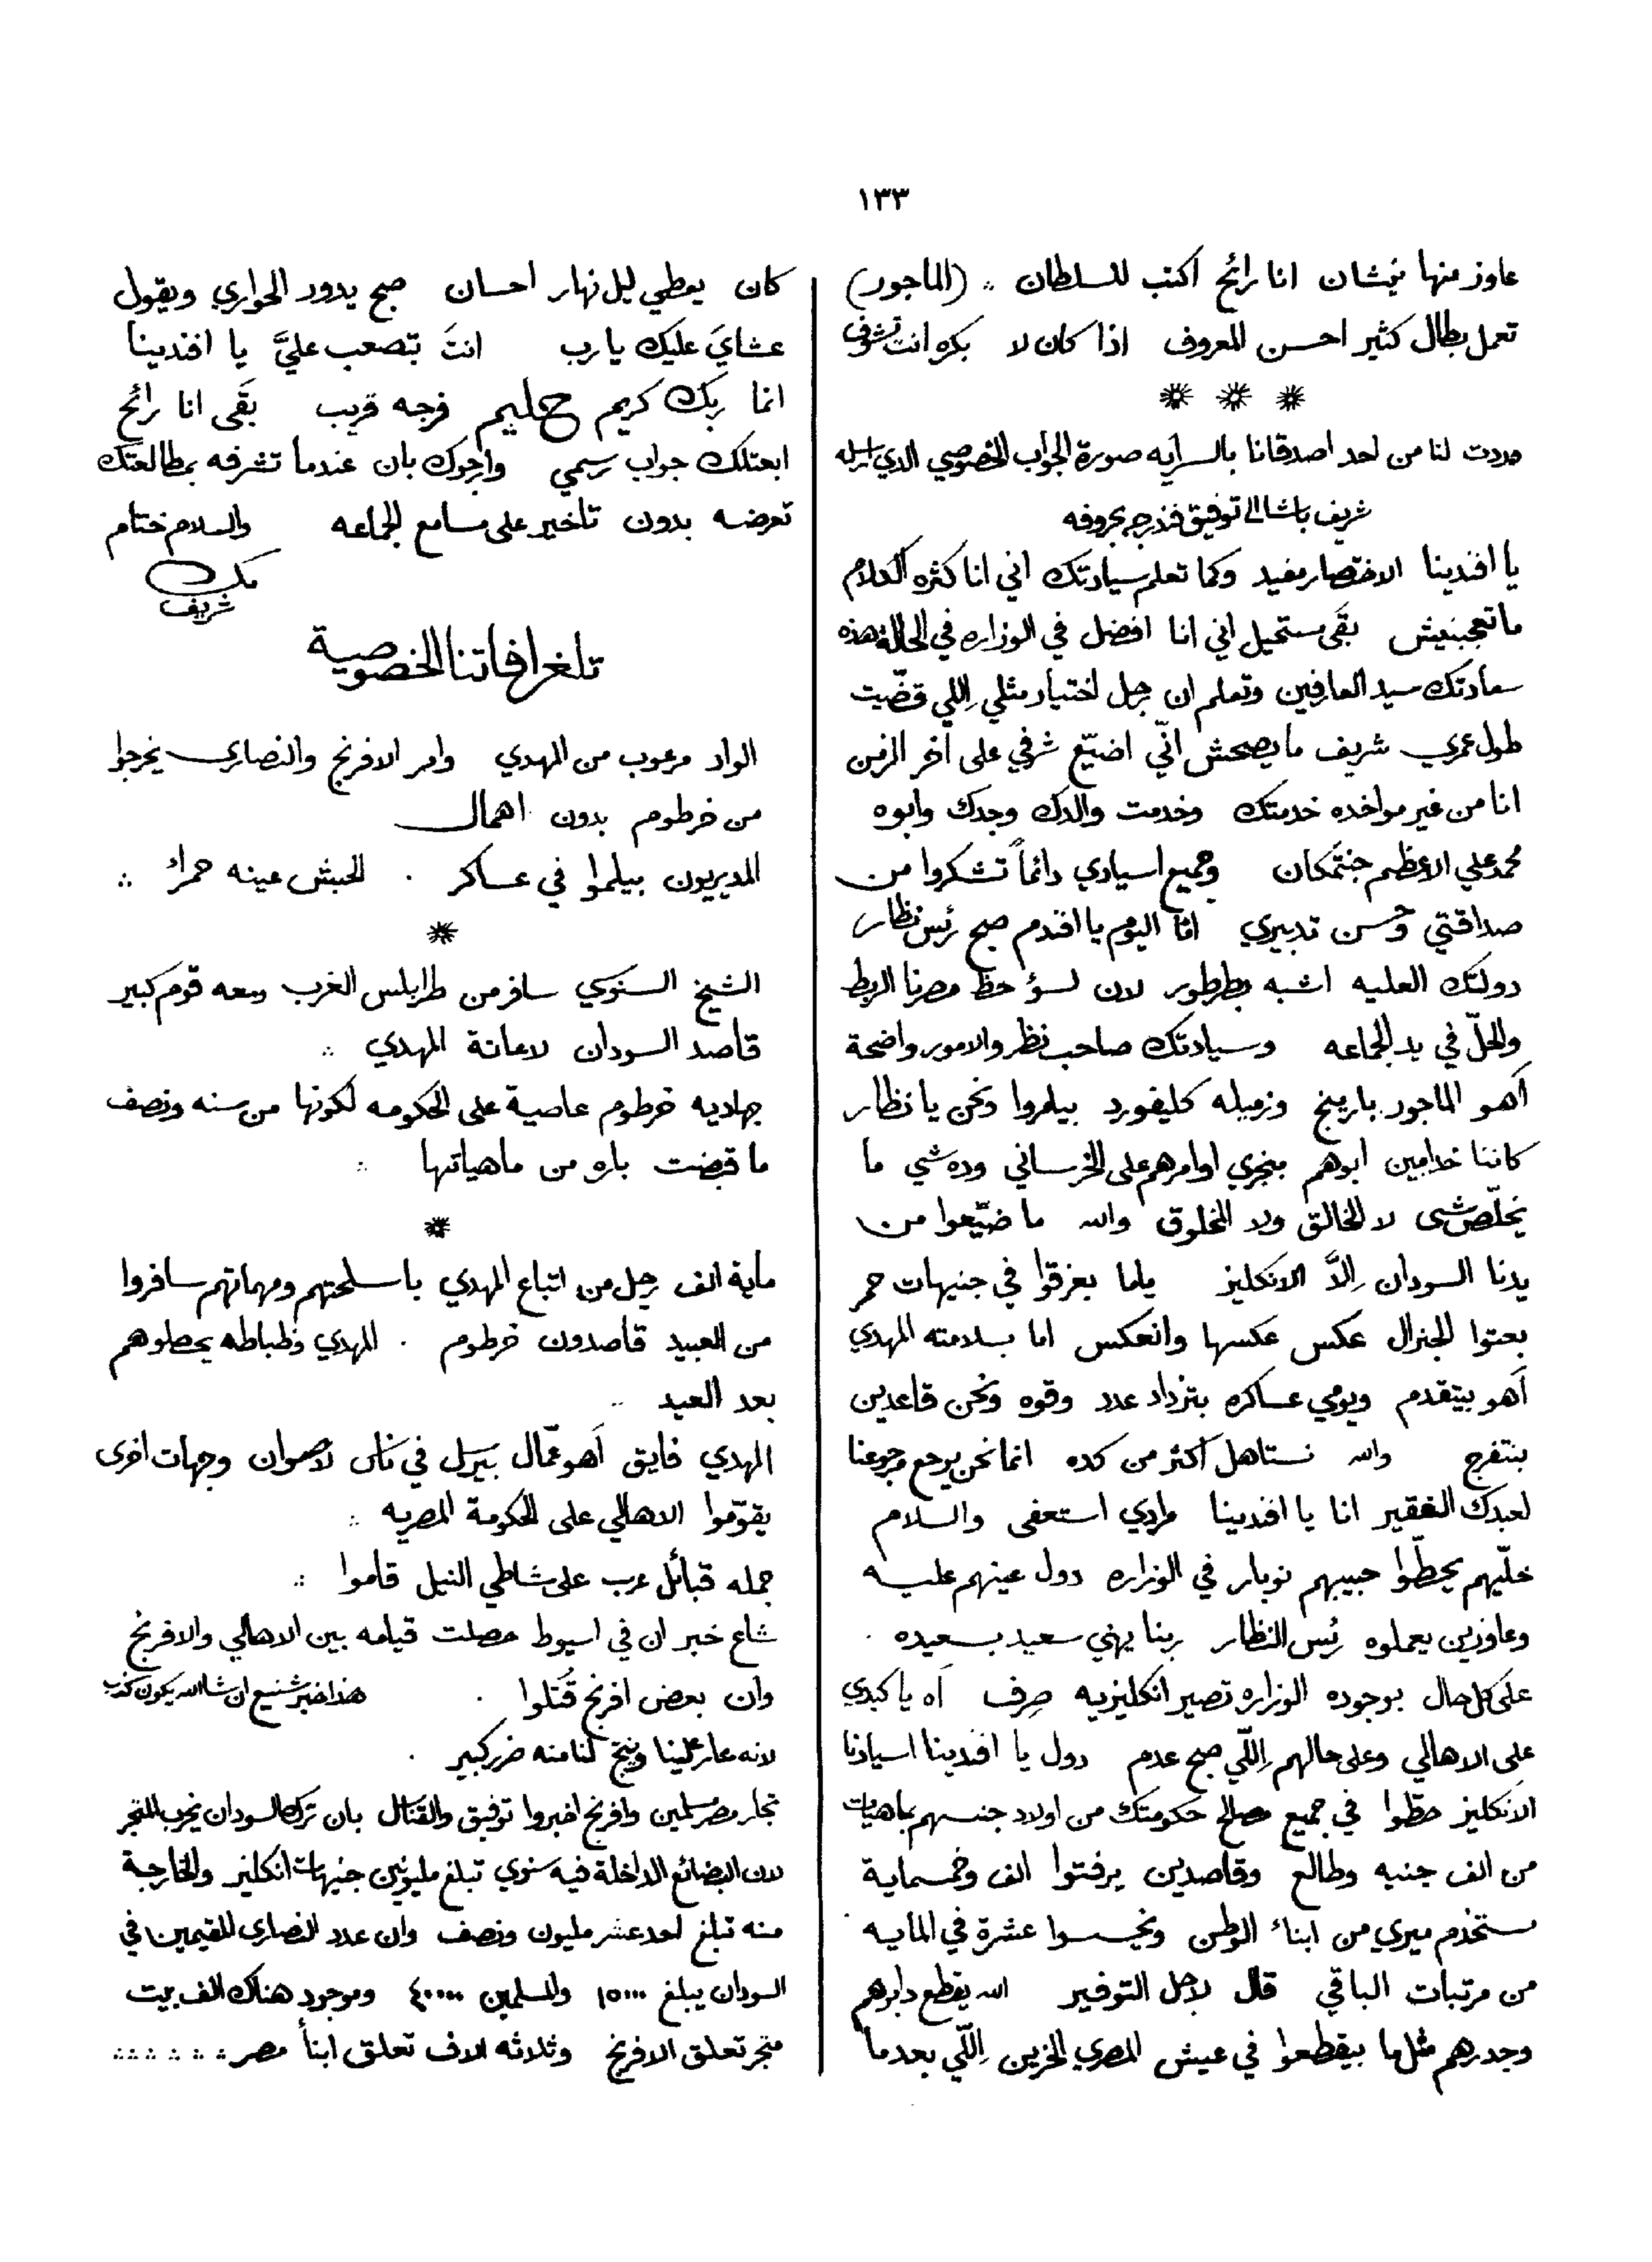 ١٣٣
عاوز منها نيشان انا رائح اكتب للسلطان ∴ (الماجور)
تعمل بطال كثير احسن المعروف اذا كان لا بكره انت تشوف
وردت لنا من احد اصدقانا بالسرايه صورة الجواب الخصوصي الذي ارسله
شريف باشا الى توفيق فندرجه بحروفه
يا افندينا الاختصار مفيد وكما تعلم سيادتك اني انا كثره الكلام
ما تعجبنيش بقى مستحيل اني انا افضل في الوزاره في الحالة هذه
سعادتك سيد العارفين وتعلم ان رجل اختيار مثلي اللي قضّيت
طول عمري شريف ما يصحش انّي اضيّع شرفي على اخر الزمن
انا من غير مواخذه خدمتك وخدمت والدك وجدك وابوه
محمد علي الاعظم جنتمكان وجميع اسيادي دائماً تشكروا من
صداقتي وحسن تدبيري امّا اليوم يا افندم صبح رئس نظار
دولتك العليه اشبه بطرطور لان لسؤ حظ مصرنا الربط
والحلّ في يد الجماعه وسيادتك صاحب نظر والامور واضحة
أهو الماجور بارينج وزميله كليفورد بيامروا ونحن يا نظار
كاننا خدامين ابوهم بنجري اوامرهم على الخرساني وده شي ما
يخلّص شي لا الخالق ولا المخلوق والله ما ضيّعوا من
يدنا السودان اِلاَّ الانكليز ياما بعزقوا في جنيهات حمر
بعتوا الجنرال عكس عكسها وانعكس اما بسلامته المهدي
أهو بيتقدم ويومي عساكره بتزداد عدد وقوه ونحن قاعدين
بنتفرج والله نستاهل اكثر من كده انما نحن يرجع مرجوعنا
لعبدك الفقير انا يا افندينا مرادي استعفى والسلام
خلّيهم يحطّوا حبيبهم نوبار في الوزاره دول عينهم عليه
وعاوزين يعملوه رئس النظار ربنا يهني سعيد بسعيده
على كل حال بوجوده الوزاره تصير انكليزيه صرف آه يا كبدي
على الاهالي وعلى حالهم اِللّي صبح عدم دول يا افندينا اسيادنا
الانكليز حطّوا في جميع مصالح حكومتك من اولاد جنسهم بماهيات
من الف جنيه وطالع وقاصدين يرفتوا الف وخمسماية
مستخدم ميري من ابناء الوطن ويخسوا عشرة في المايه
من مرتبات الباقي قال لاجل التوفير الله يقطع دابرهم
وجدرهم مثل ما بيقطعوا في عيش المصري الحزين اِللّي بعد ما
كان يعطي ليل نهار احسان صبح يدور الحواري ويقول
عشايَ عليك يا رب انتَ بتصعب عليَّ يا افندينا
انما ربك كريم حليم فرجه قريب بقَى انا رائح
ابعتلك جواب رسمي وارجوك بان عندما تشرفه بمطالعتك
تعرضه بدون تاخير على مسامع الجماعه والسلام ختام
شريف
تلغرافاتنا الخصوصية
الواد مرعوب من المهدي وامر الافرنج والنصارى يخرجوا
من خرطوم بدون اهمال
المديريون بيلموا في عساكر . الحبش عينه حمراء ∴
الشيخ السنوسي سافر من طرابلس الغرب ومعه قوم كبير
قاصد السودان لاعانة المهدي ∴
جهاديه خرطوم عاصية على الحكومه لكونها من سنه ونصف
ما قبضت باره من ماهياتها ∴
ماية الف رجل من اتباع المهدي باسلحتهم ومهماتهم سافروا
من العبيد قاصدون خرطوم . المهدي وظباطه يحصلوهم
بعد العيد
المهدي فايق أهو عمّال بيرسل في ناس لاصوان وجهات اخرى
يقوّموا الاهالي على الحكومة المصريه ∴
جمله قبائل عرب على شاطي النيل قاموا ∴
شاع خبر ان في اسيوط حصلت قيامه بين الاهالي والافرنج
وان بعض افرنج قُتلوا . هذا خبر شنيع ان شا الله يكون كذب
لانه عار علينا وينتج لنا منه ضرر كبير .
تجار مصر مسلمين وافرنج اخبروا توفيق والقنال بان ترك السودان يخرب المتجر
لان البضائع الداخلة فيه سنوي تبلغ مليونين جنيهات انكليز والخارجة
منه تبلغ احد عشر مليون ونصف وان عدد النصارى المقيمين في
السودان يبلغ ١٥٠٠٠ والمسلمين ٤٠٠٠٠ وموجود هناك الف بيت
متجر تعلق الافرنج وثلاثه الاف تعلق ابنأ مصر ∴ ∴ ∴ ∴